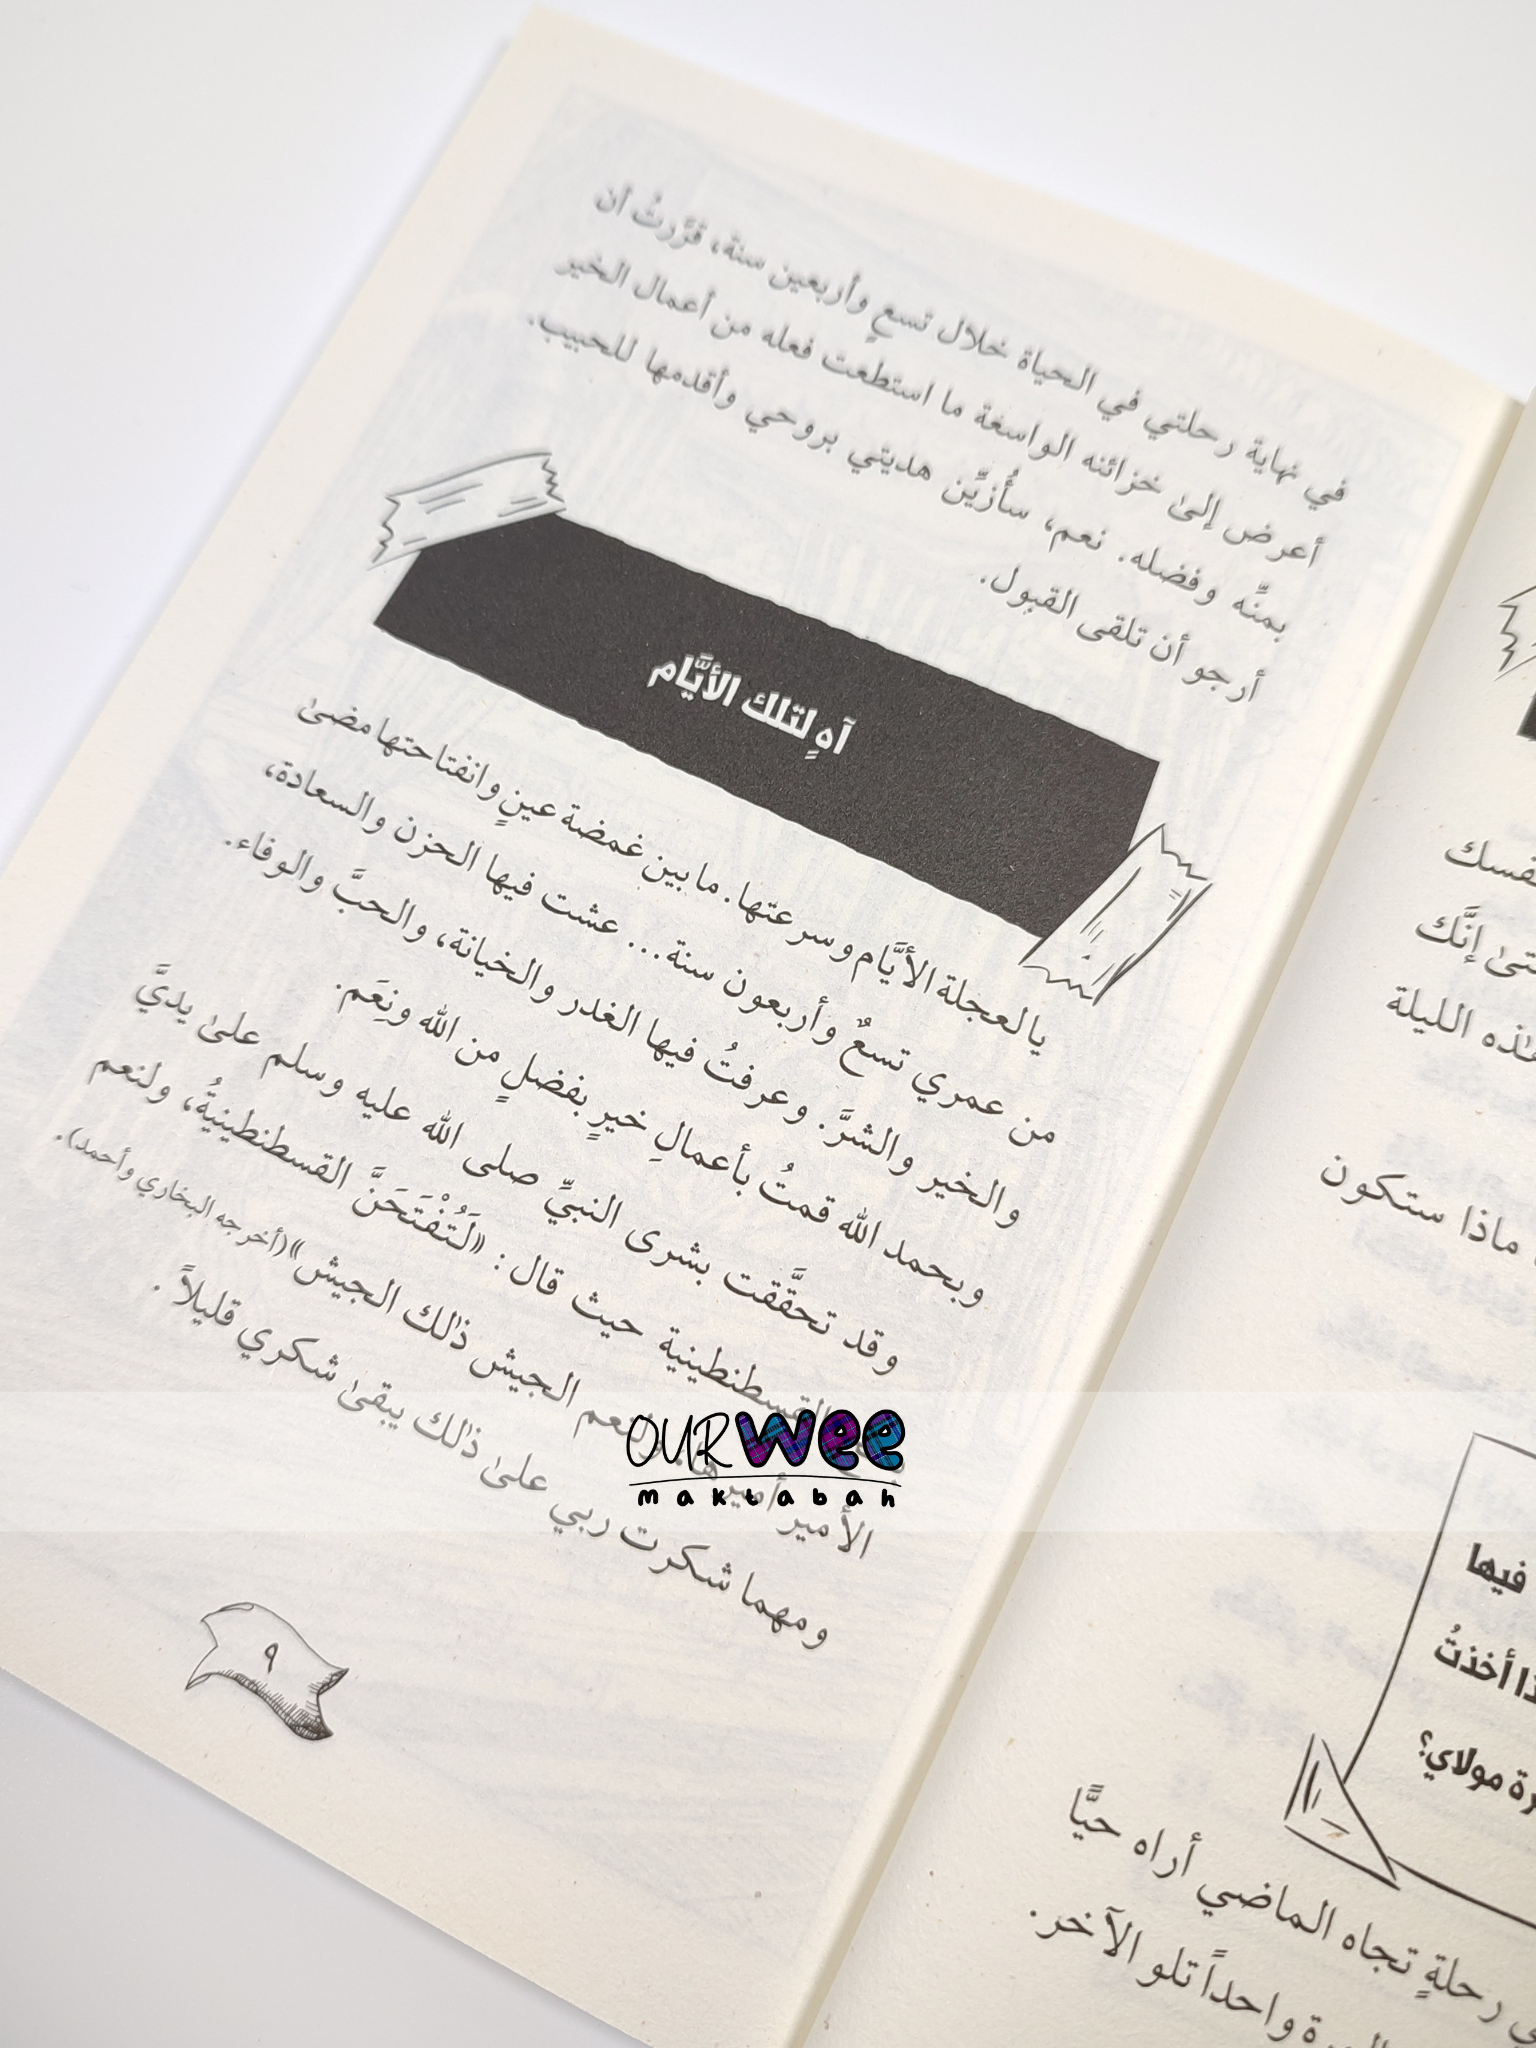 في نهاية رحلتي في الحياة خلال تسعٍ وأربعين سنة، قرَّرتُ أن
أعرض إلىٰ خزائنه الواسعة ما استطعت فعله من أعمال الخير
بمنِّه وفضله. نعم، سأُزيِّن هديتي بروحي وأقدمها للحبيب.
أرجو أن تلقى القبول.
آهٍ لتلك الأيَّام
يا لعجلة الأيَّام وسرعتها. ما بين غمضة عينٍ وانفتاحتها مضىٰ
من عمري تسعٌ وأربعون سنة... عشت فيها الحزن والسعادة،
والخير والشرَّ. وعرفتُ فيها الغدر والخيانة، والحبَّ والوفاء.
وبحمد الله قمتُ بأعمالِ خيرٍ بفضلٍ من الله ونِعَم.
وقد تحقَّقت بشرى النبيِّ صلى الله عليه وسلم علىٰ يديَّ
القسطنطينية حيث قال: «لَتُفْتَحَنَّ القسطنطينيةُ، ولنعم
الأمير أميرها، ولنعم الجيش ذٰلك الجيش» (أخرجه البخاري وأحمد).
ومهما شكرت ربي علىٰ ذٰلك يبقىٰ شكري قليلاً.
٩
OUR wee
maktabah
إنَّك
الليلة
ماذا ستكون
فيها
أخذتُ
مولاي؟
رحلةٍ تجاه الماضي أراه حيًّا
واحداً تلو الآخر.